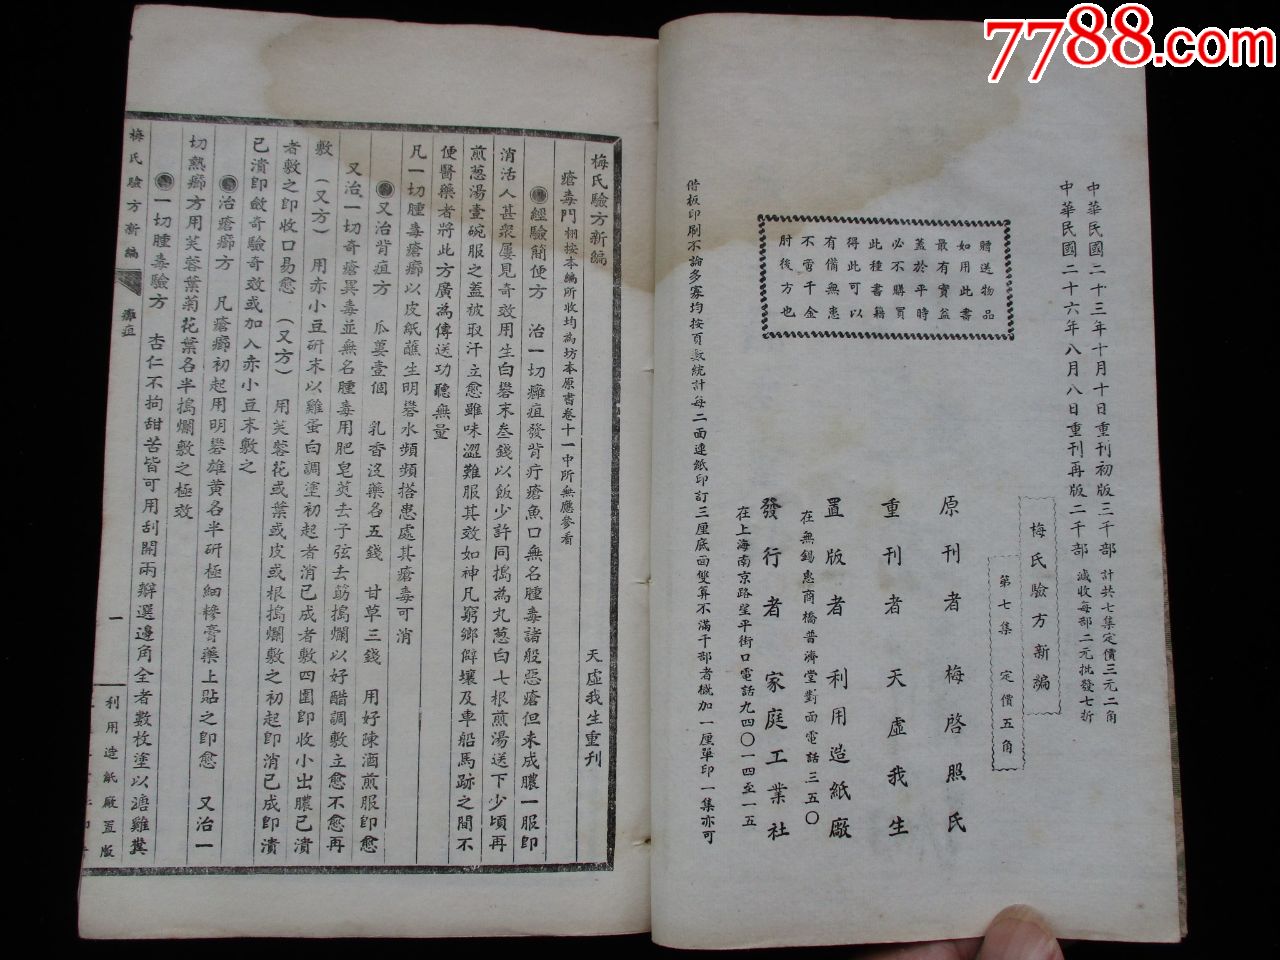 7788.com
中華民國二十三年十月十日重刊初版三千部 計共七集定價三元二角
中華民國二十六年八月八日重刊再版二千部 減收每部二元批發七折
梅氏驗方新編
第七集 定價五角
原刊者 梅啓照氏
重刊者 天虛我生
置版者 利用造紙廠
在無錫惠商橋普濟堂對面電話三五〇
發行者 家庭工業社
在上海南京路望平街口電話九四〇一四至一五
贈送物品
如用此書
最有實益
蓋於平時
必不購買
此種書籍
得此可以
有備無患
不啻千金
肘後方也
借板印刷不論多寡均按頁數統計每二面連紙印訂三厘底面雙算不滿千部者概加一厘單印一集亦可
梅氏驗方新編
天虛我生重刊
瘡毒門 栩按本編所收均為坊本原書卷十一中所無應參看
經驗簡便方 治一切癰疽發背疔瘡魚口無名腫毒諸般惡瘡但未成膿一服即
消活人甚衆屢見奇效用生白礬末叁錢以飯少許同搗為丸葱白七根煎湯送下少頃再
煎葱湯壹碗服之蓋被取汗立愈雖味澀難服其效如神凡窮鄉僻壤及車船馬跡之間不
便醫藥者將此方廣為傳送功聽無量
凡一切腫毒瘡癤以皮紙蘸生明礬水頻頻搭患處其瘡毒可消
又治背疽方 瓜蔞壹個 乳香沒藥各五錢 甘草三錢 用好陳酒煎服即愈
又治一切奇瘡異毒並無名腫毒用肥皂莢去子弦去筋搗爛以好醋調敷立愈不愈再
敷(又方) 用赤小豆研末以雞蛋白調塗初起者消已成者敷四圍即收小出膿已潰
者敷之即收口易愈(又方) 用芙蓉花或葉或皮或根搗爛敷之初起即消已成即潰
已潰即斂奇驗奇效或加入赤小豆末敷之
治瘡癤方 凡瘡癤初起用明礬雄黃各半研極細糝膏藥上貼之即愈 又治一
切熱癤方用芙蓉葉菊花葉各半搗爛敷之極效
一切腫毒驗方 杏仁不拘甜苦皆可用刮開兩瓣選邊角全者數枚塗以溏雞糞
梅氏驗方新編 癰疽 一 利用造紙廠置版